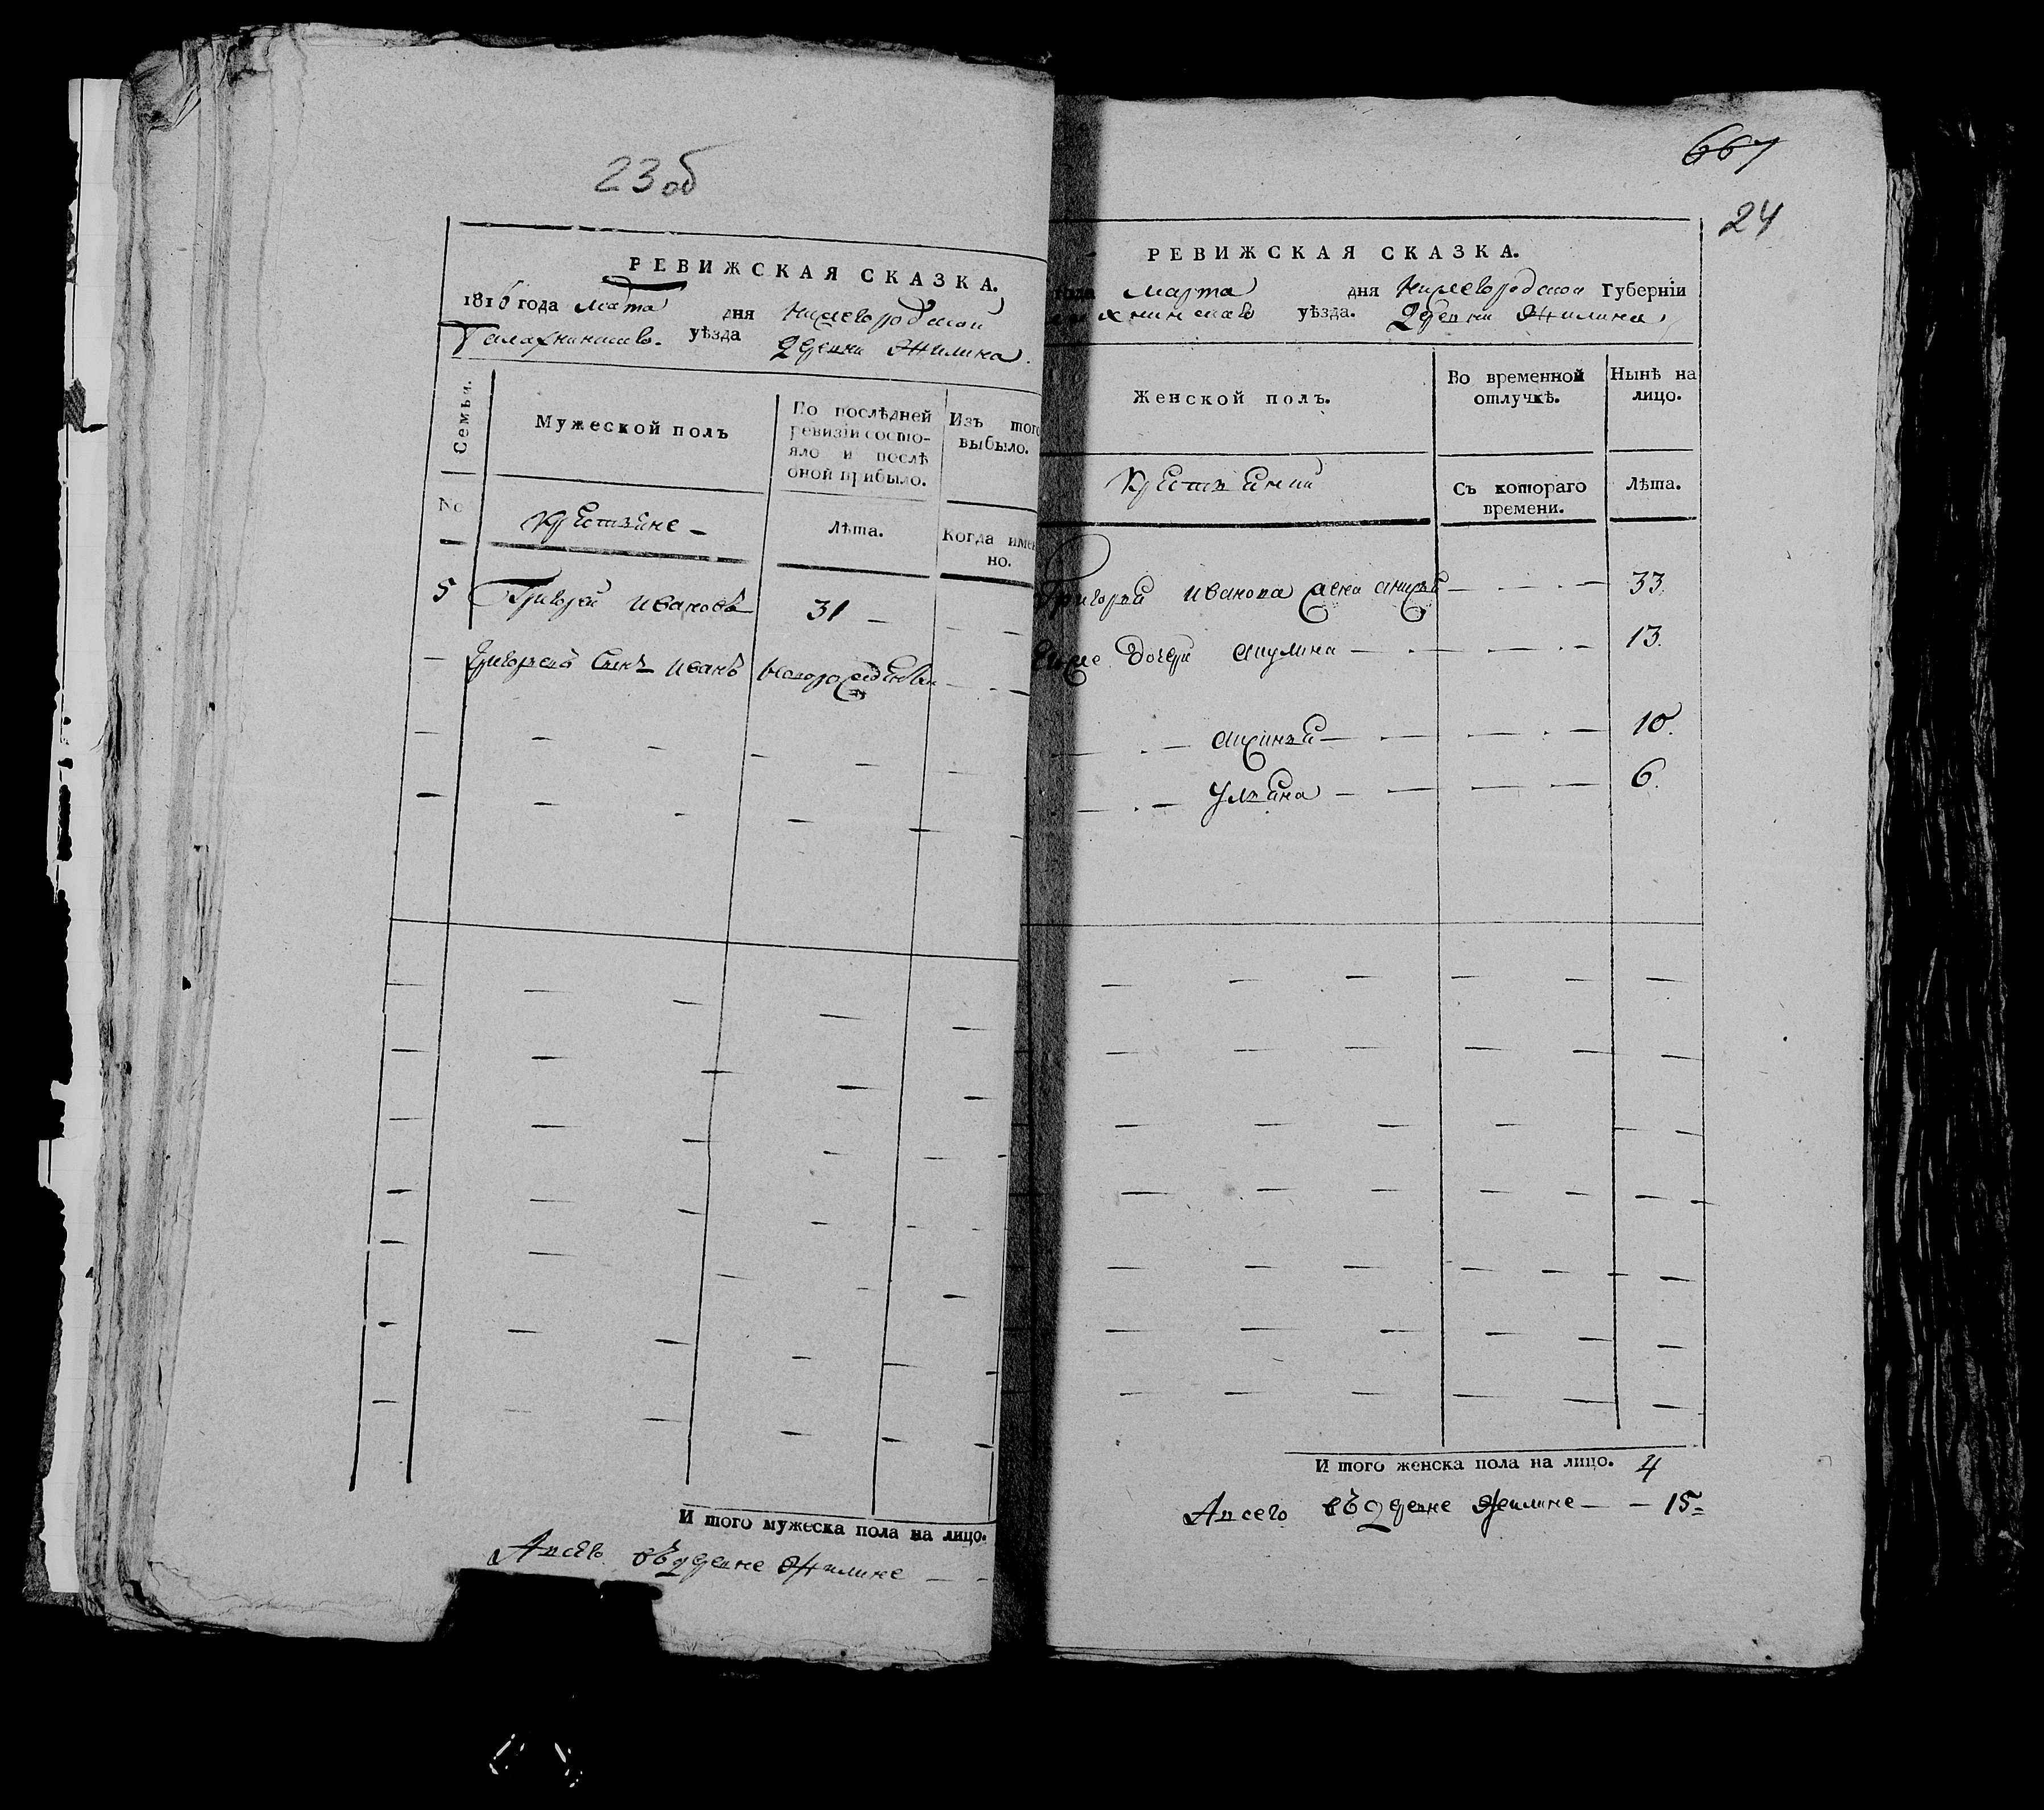 23 об
РЕВИЖСКАЯ СКАЗКА.
1816 года марта дня Нижегородской
Балахнинскаго. уѣзда деревни Жилина.
Семьи.
Мужеской полъ
По послѣдней ревизіи состояло и послѣ оной прибыло.
Изъ того выбыло.
No
крестьяне
Лѣта.
Когда имен
но.
5 Григорей Ивановъ 31
Григорьевъ сынъ Иванъ новорожденный
И того мужеска пола на лицо.
А всего въ деревне Жилине
667
24
РЕВИЖСКАЯ СКАЗКА.
года марта дня Нижегородской Губерніи
хнинскаго уѣзда. деревни Жилина
Женской полъ.
Во временной отлучкѣ.
Нынѣ на лицо.
Съ котораго времени.
Лѣта.
Григорья Иванова жена 33.
дочери Акулина 13.
Аксинья 10.
Ульяна 6.
И того женска пола на лицо. 4
А всего въ деревне Жилине 15